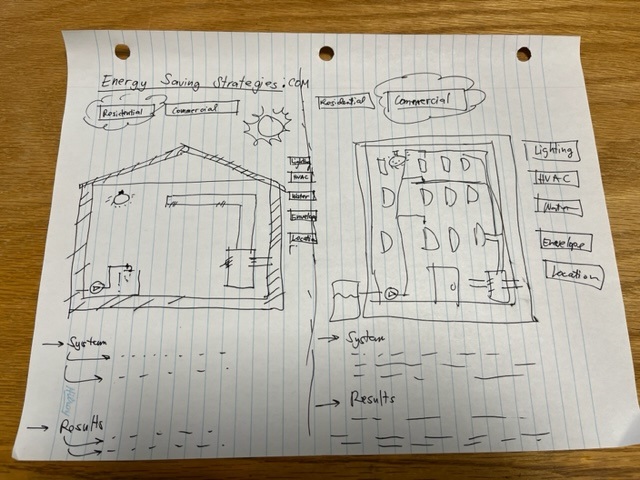 Energy Saving Strategies.COM
Residential
Commercial
Lighting
HVAC
Water
Envelope
Location
System
Results
Residential
Commercial
Lighting
HVAC
Water
Envelope
Location
System
Results